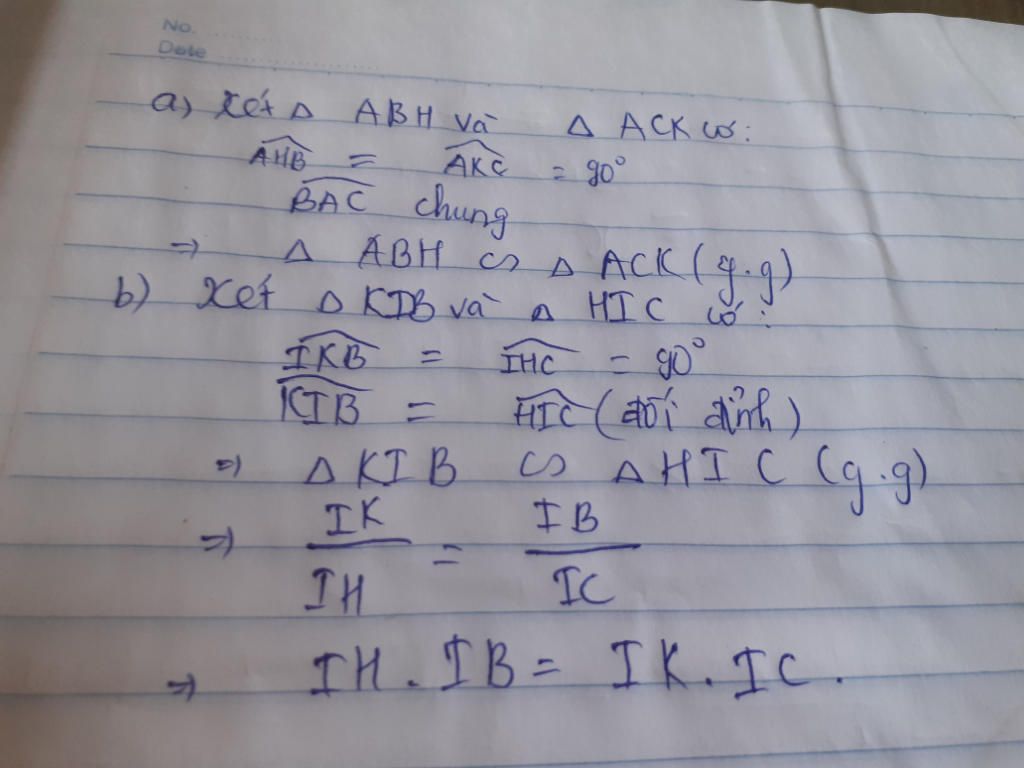 No.
Date
a) Xét Δ ABH và Δ ACK có:
$\widehat{AHB}$ = $\widehat{AKC}$ = 90°
$\widehat{BAC}$ chung
=> Δ ABH ∽ Δ ACK (g.g)
b) Xét Δ KIB và Δ HIC có:
$\widehat{IKB}$ = $\widehat{IHC}$ = 90°
$\widehat{KIB}$ = $\widehat{HIC}$ (đối đỉnh)
=> Δ KIB ∽ Δ HIC (g.g)
=> $\frac{IK}{IH}$ = $\frac{IB}{IC}$
=> IH . IB = IK . IC.